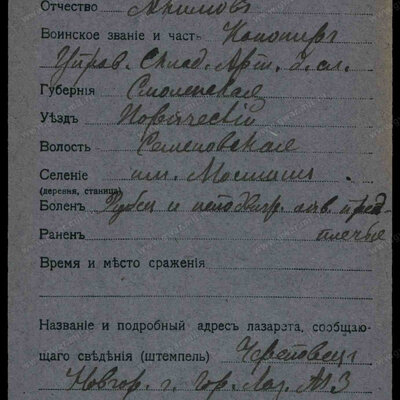 Отчество Акимовъ
Воинское званіе и часть Канониръ
Управ. Склад. Арт. 2. сл.
Губернія Смоленская
Уѣздъ Порѣческій
Волость Семеновская
Селеніе им.
(деревня, станица)
Боленъ Рубец и неподвиж. лѣв. пред-
Раненъ плечье
Время и мѣсто сраженія
Названіе и подробный адресъ лазарета, сообщаю-
щаго свѣдѣнія (штемпель) Череповецъ
Новгор. г. Гор. Лаз. №3